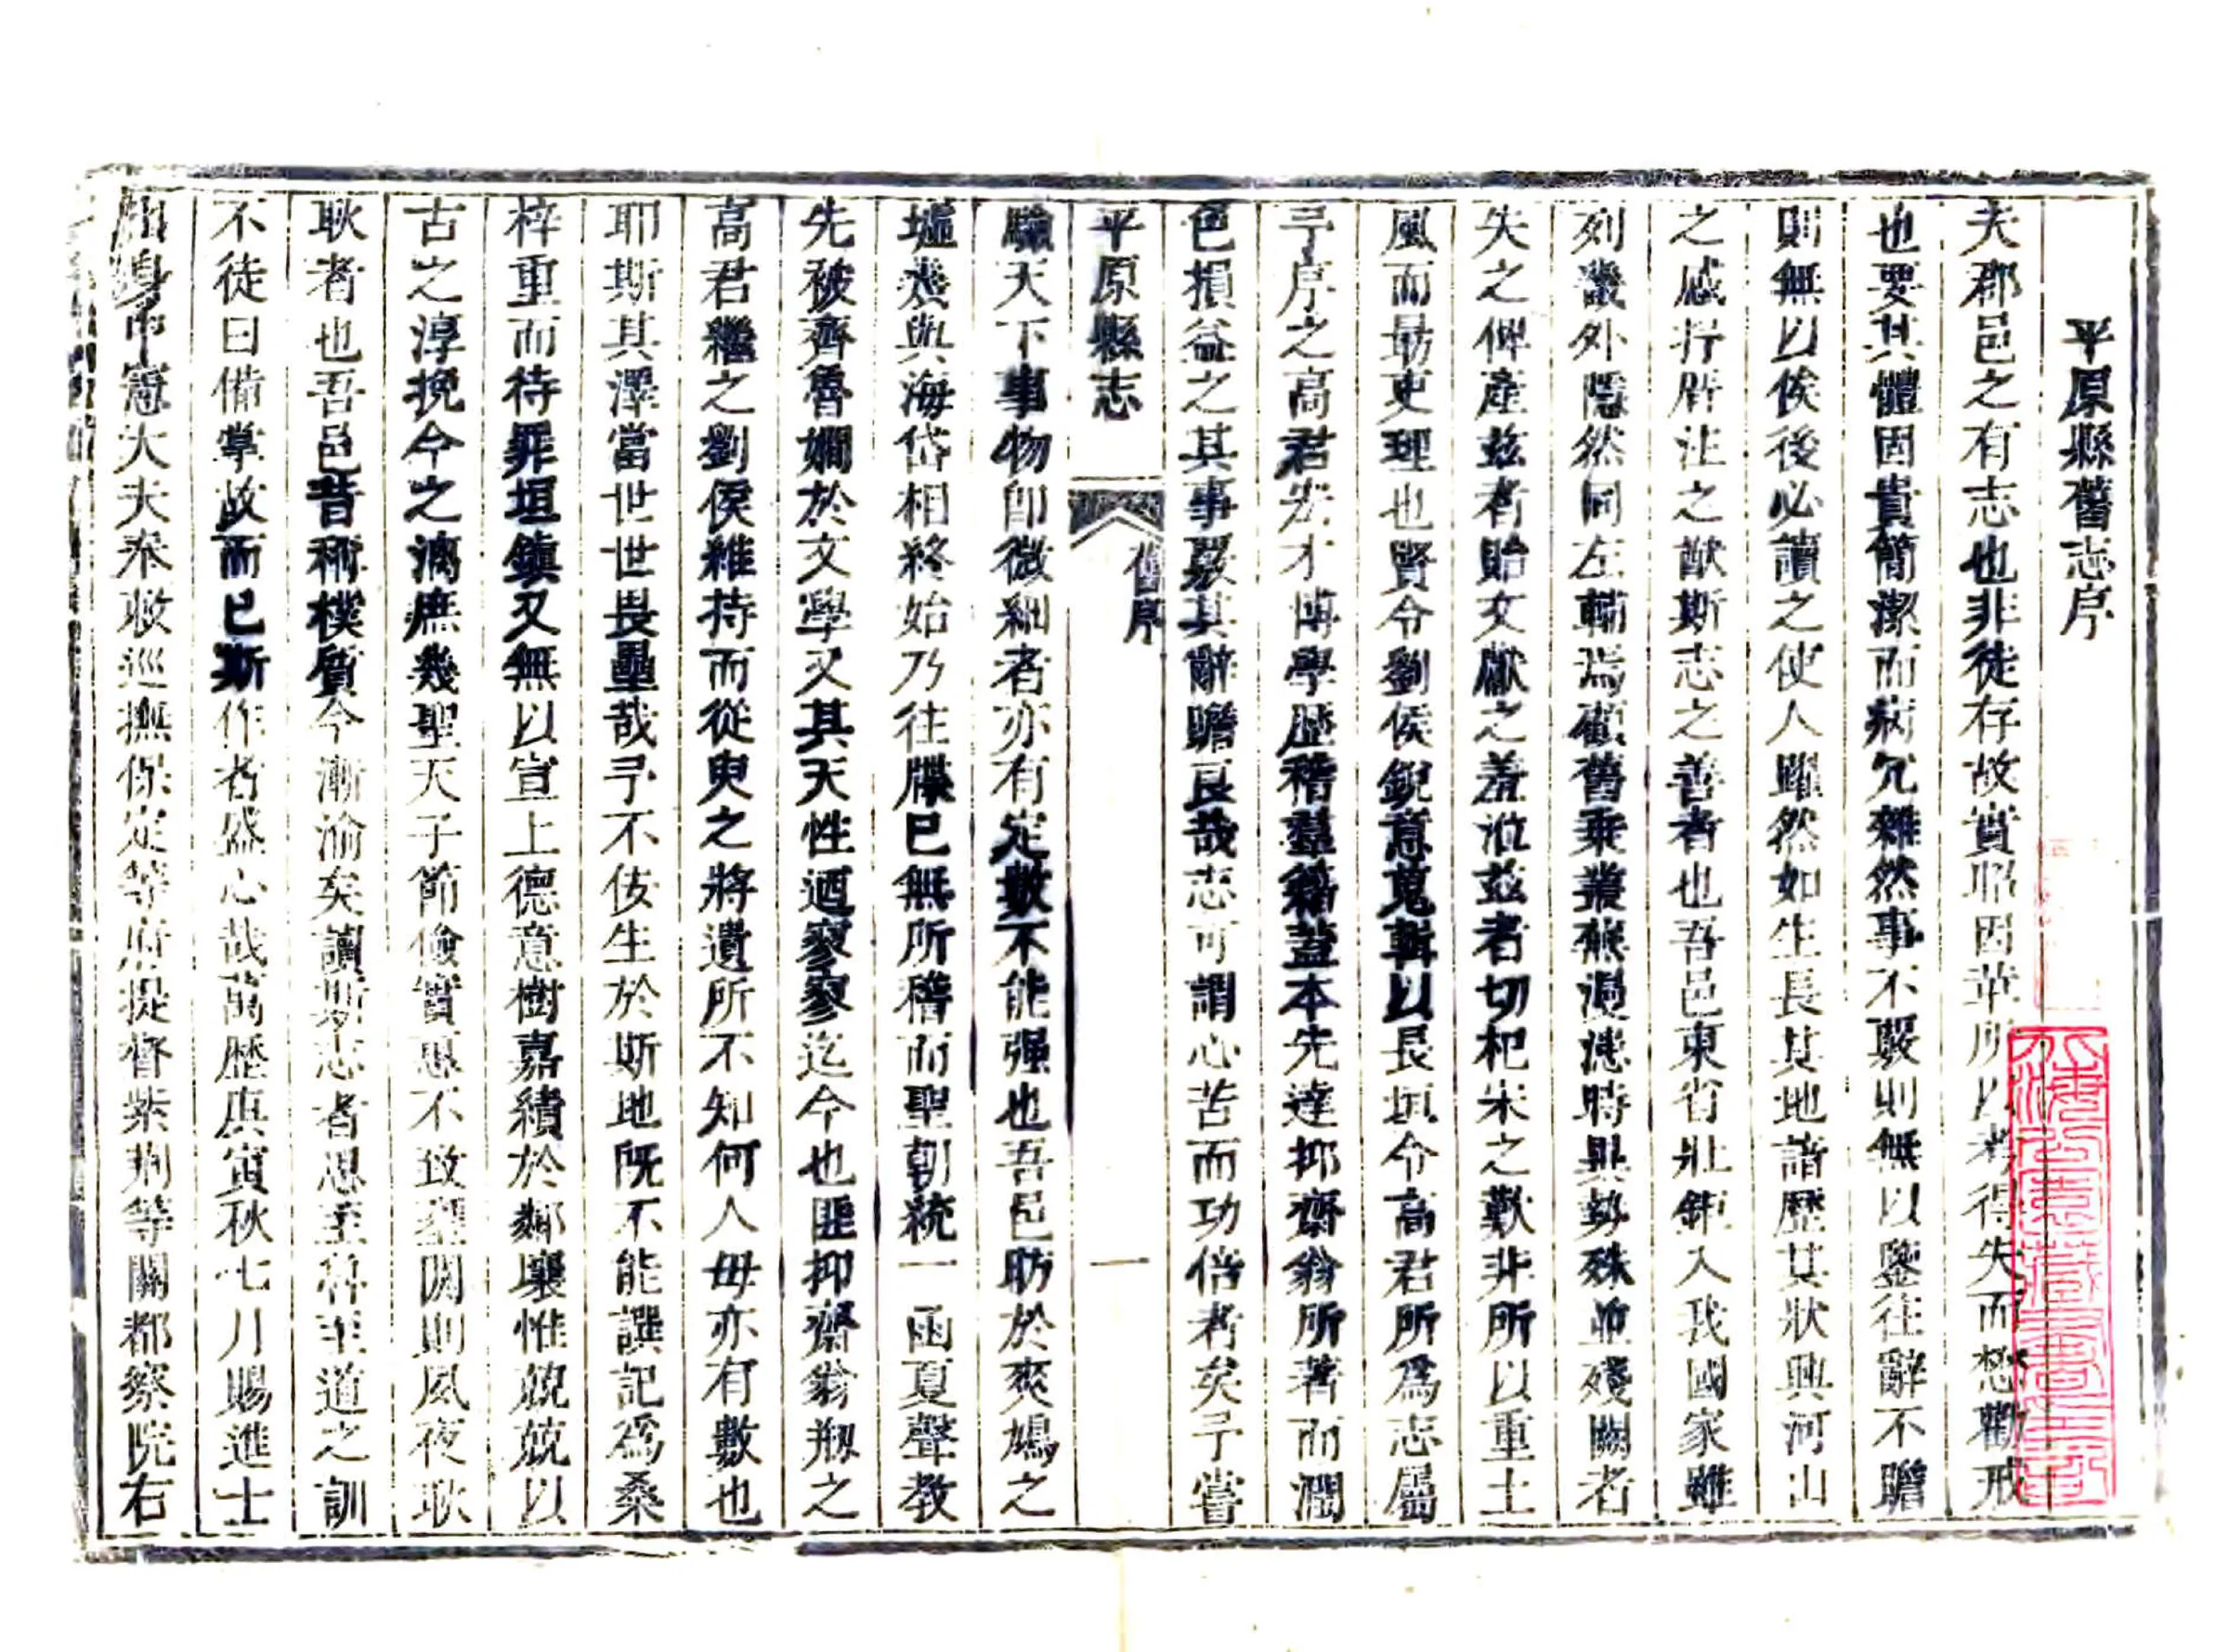 平原縣舊志序
夫郡邑之有志也非徒存故實昭因革所以考得失而懲勸戒
也要其體固貴簡潔而病冗雜然事不覈則無以鑒往辭不贍
則無以俟後必讀之使人躍然如生長其地諳歷其狀興河山
之感抒所注之猷斯志之善者也吾邑東省壯鉅入我國家雖
列畿外隱然同左輔焉顧舊乗叢蕪漫漶時異勢殊並殘闕者
失之俾產兹者貽文獻之羞涖兹者切杞宋之歎非所以重土
風而勗吏理也賢令劉侯銳意蒐輯以長垣令高君所爲志屬
予序之高君宏才博學歷稽羣籍葢本先達抑齋翁所著而潤
色損益之其事覈其辭贍良哉志可謂心苦而功倍者矣予嘗
平原縣志 舊序 一
驗天下事物卽微細者亦有定數不能强也吾邑昉於爽鳩之
墟表與海岱相終始乃往牒已無所稽而聖朝統一函夏聲教
先被齊魯嫺於文學又其天性迺寥寥迄今也匪抑齋翁剏之
高君繼之劉侯維持而從臾之將遺所不知何人毋亦有數也
耶斯其澤當世世畏壘哉予不佞生於斯地既不能譔記爲桑
梓重而待罪垣鎮又無以宣上德意樹嘉績於鄰壤惟兢兢以
古之淳挽今之漓庶幾聖天子節儉實思不致壅閼則夙夜耿
耿者也吾邑昔稱樸質今漸渝矣讀斯志者思至科至道之訓
不徒曰備掌故而已斯作者盛心哉萬歷庚寅秋七月賜進士
出身中憲大夫奉敕巡撫保定等府提督紫荆等關都察院右